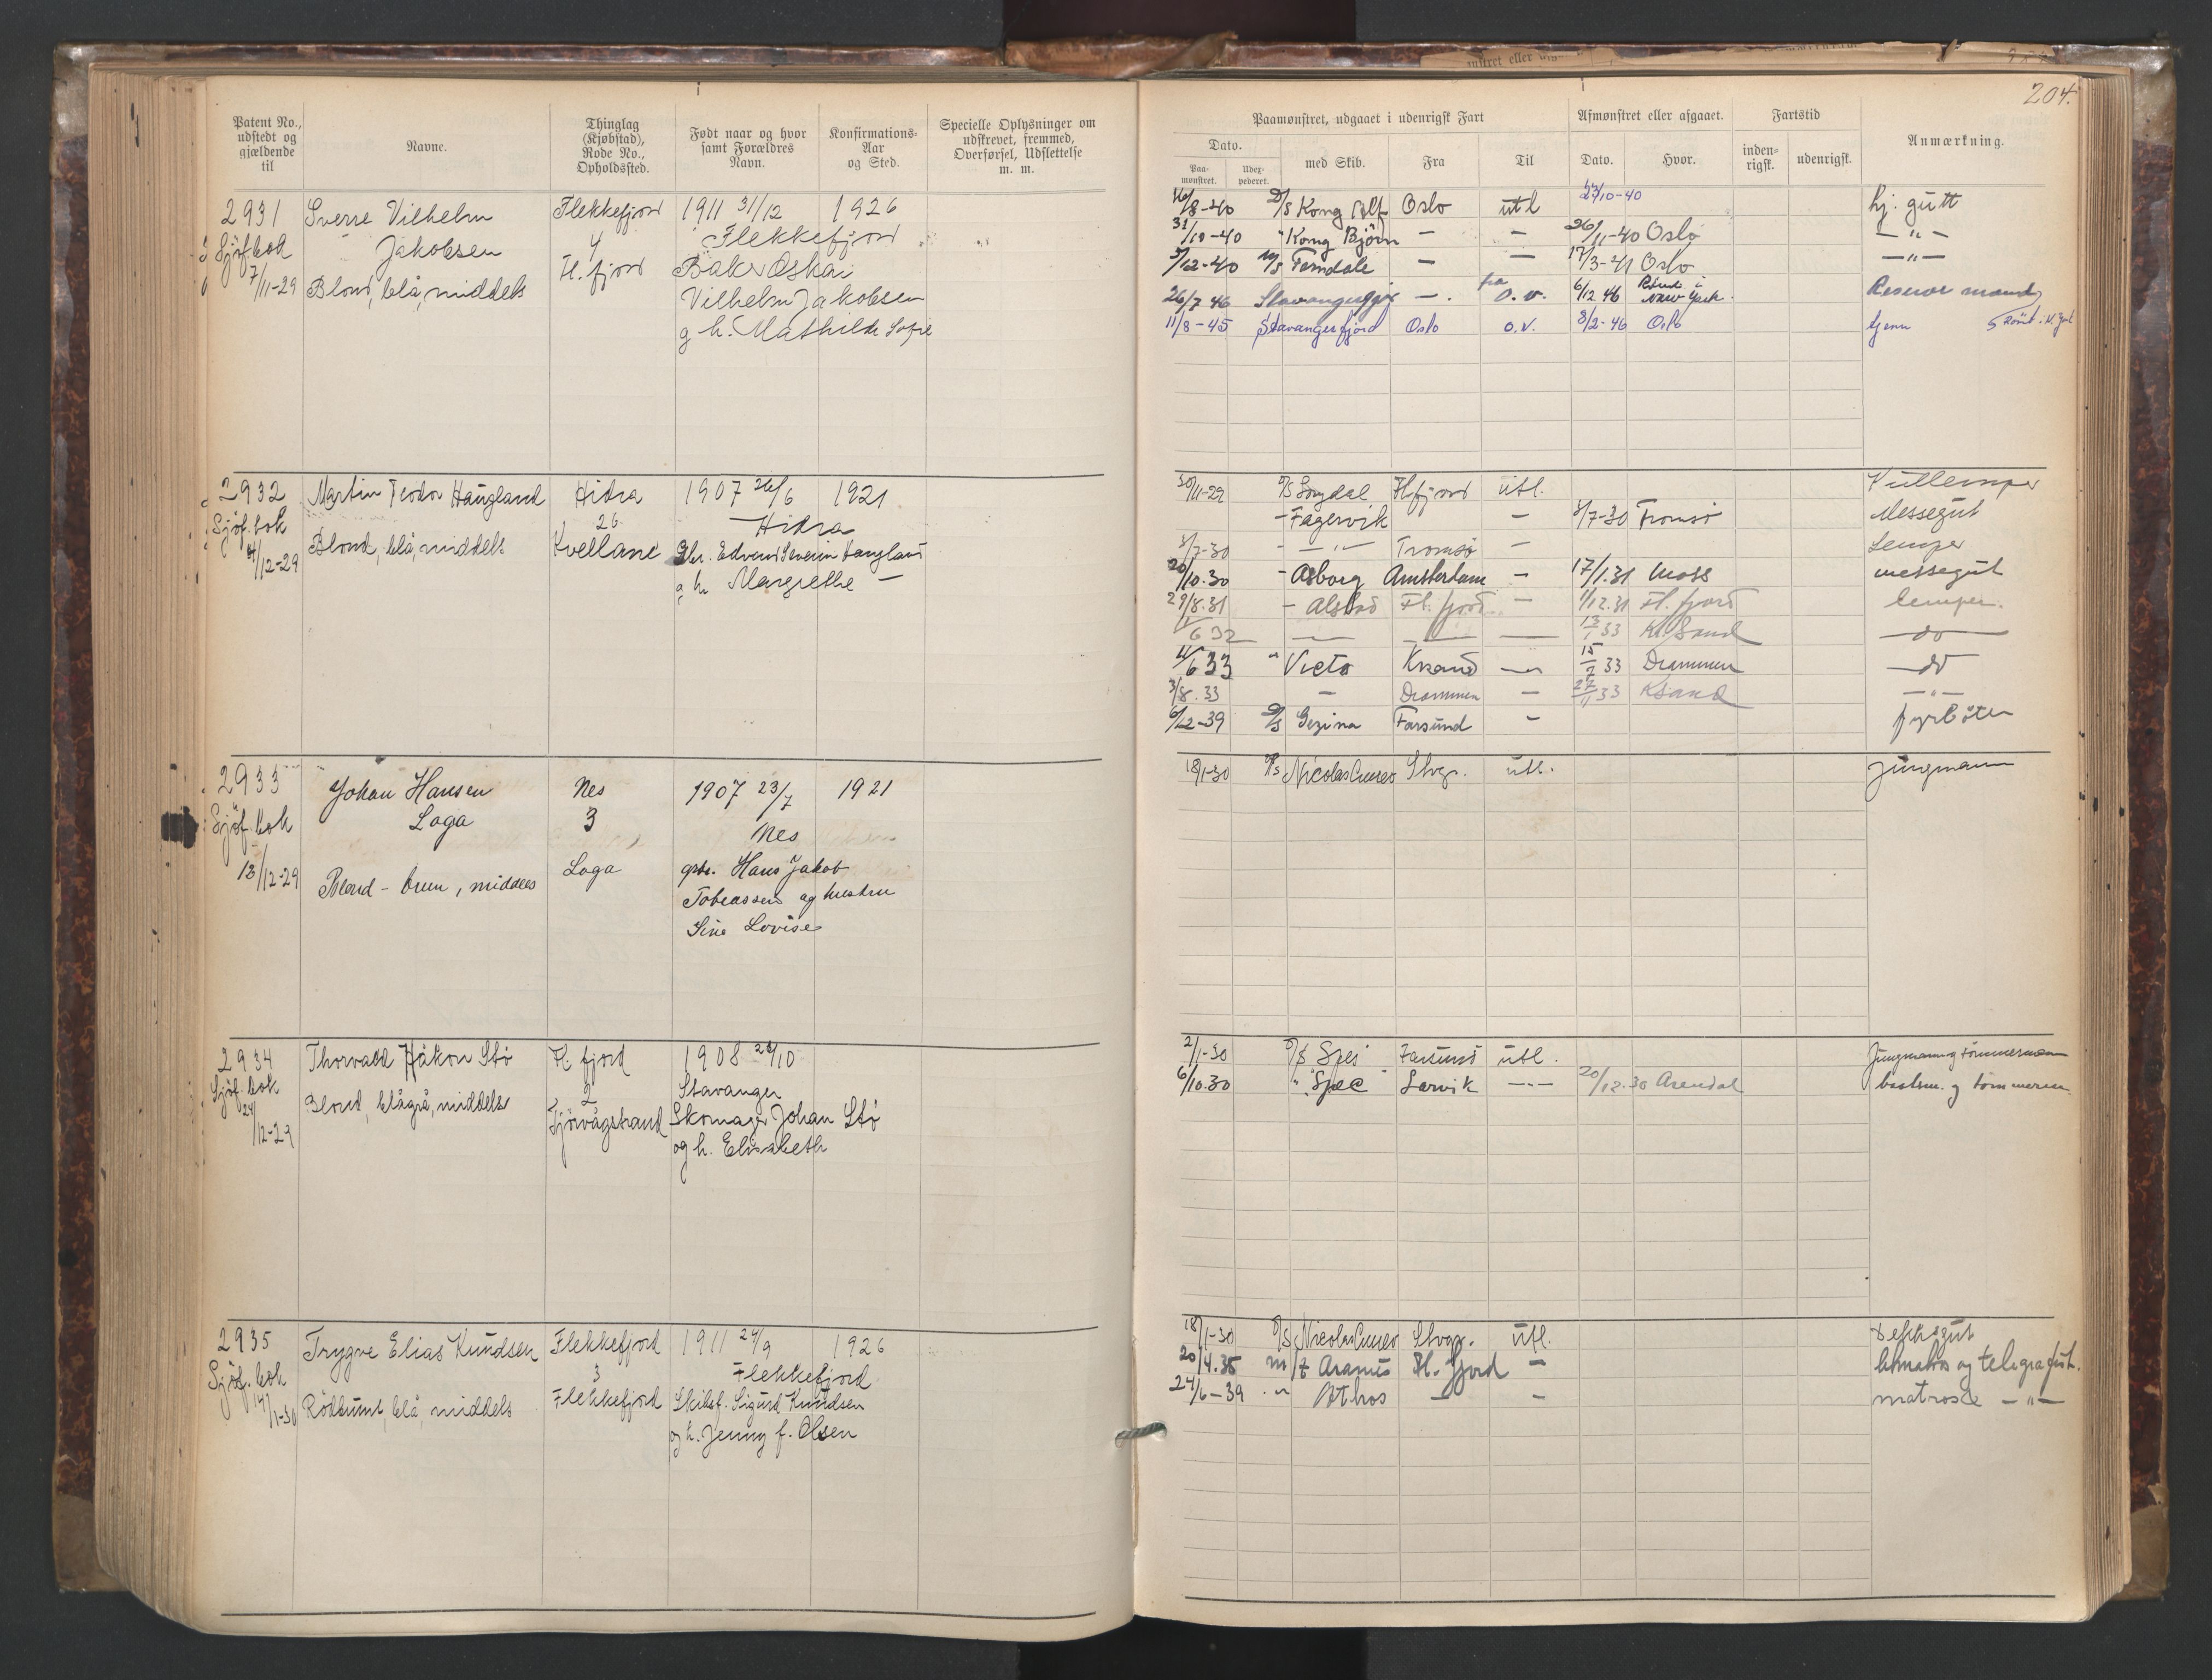 204.
Patent No., udstedt og gjældende til
Navne.
Thinglag (Kjøbstad), Rode No., Opholdssted.
Født naar og hvor samt Forældres Navn.
Konfirmations-Aar og Sted.
Specielle Oplysninger om udskrevet, fremmed, Overførsel, Udslettelse m. m.
Paamønstret, udgaaet i udenrigsk Fart
Afmønstret eller afgaaet.
Fartstid
Anmærkning.
Dato.
Paa-mønstret.
Udex-pederet.
med Skib.
Fra
Til
Dato.
Hvor.
inden-rigsk.
udenrigsk.
2931 Sverre Vilhelm Flekkefjord 1911 31/12 1926
Sjöf.bok Jakobsen 4 Flekkefjord
7/11-29 Blond, blå, middels Fl. fjord Baker Oskar
Vilhelm Jakobsen
g h. Mathilde Sofie
16/8-40 D/S Kong Alf Oslo utl 27/10-40 hj. gutt
31/10-40 " Kong Bjørn — — 26/11-40 Oslo — " —
5/12-40 M/S Ferndale — — 17/3-41 Oslo — " —
26/7 46 Stavangerfj — . fra O. v. 6/12 46 New York Reserve mand
11/8-45 Stavangerfjord Oslo o.v. 8/2-46 Oslo
2932 Martin Teodor Haugland Hidra 1907 26/6 1921
Sjöf.bok 26 Hidra
4/12-29 Blond, blå, middels Kvellane Gbr. Edvard Severin Haugland
g h. Margrethe —
30/11-29 D/S Sogdal Fl.fjord utl. Kullemper
- Fagervik — 3/7-30 Tromsö Messegut
3/7-30 - — " — Tromsö — Lemper
20/10.30 - Asborg Amsterdam — 17/1.31 Moss messegut
29/8.31 - Alstad Fl. fjord — 1/12.31 Fl. fjord lemper.
6 32 — — — 13/1 33 Kr. Sand — do —
11/6 33 " Victo Krsand — " 15/7 33 Drammen — do
3/8. 33 — Drammen — 27/11 33 KSand — " —
6/12-39 D/S Gezina Farsund — fyrböter
2933 Johan Hansen Nes 1907 23/7 1921
Sjöf. bok Loga 3 Nes
13/12-29 Blond - brun, middels Loga gbr. Hans Jakob
Tobiassen og hustru
Sine Lovise
18/1-30 D/S Nicolas Cuneo Stvgr. utl. Jungmann
2934 Thorvald Håkon Stö Fl. fjord 1908 28/10
Sjöf. bok 2 Stavanger
24/12-29 Blond, blågrå, middels Tjörvågstrand Skomager Johan Stö
og h. Elisabeth
2/1-30 D/S Spes Farsund utl. Jungmann og tömmermann
6/10.30 " Spec " Larvik — " — 20/12.30 Arendal bestm. og tömmerm
2935 Trygve Elias Knudsen Flekkefjord 1911 24/9 1926
Sjöf. bok 3 Flekkefjord
14/1-30 Rödbrunt, blå, middels Flekkefjord Skibsf. Sigurd Knudsen
og h. Jenny f. Olsen
18/1-30 D/S Nicolas Cuneo Stvgr. utl. Dekksgut
20/4.35 m/T Aramis Fl. fjord — lettmatros og telegrafist.
24/6-39 . " Athos — — matrose — " —